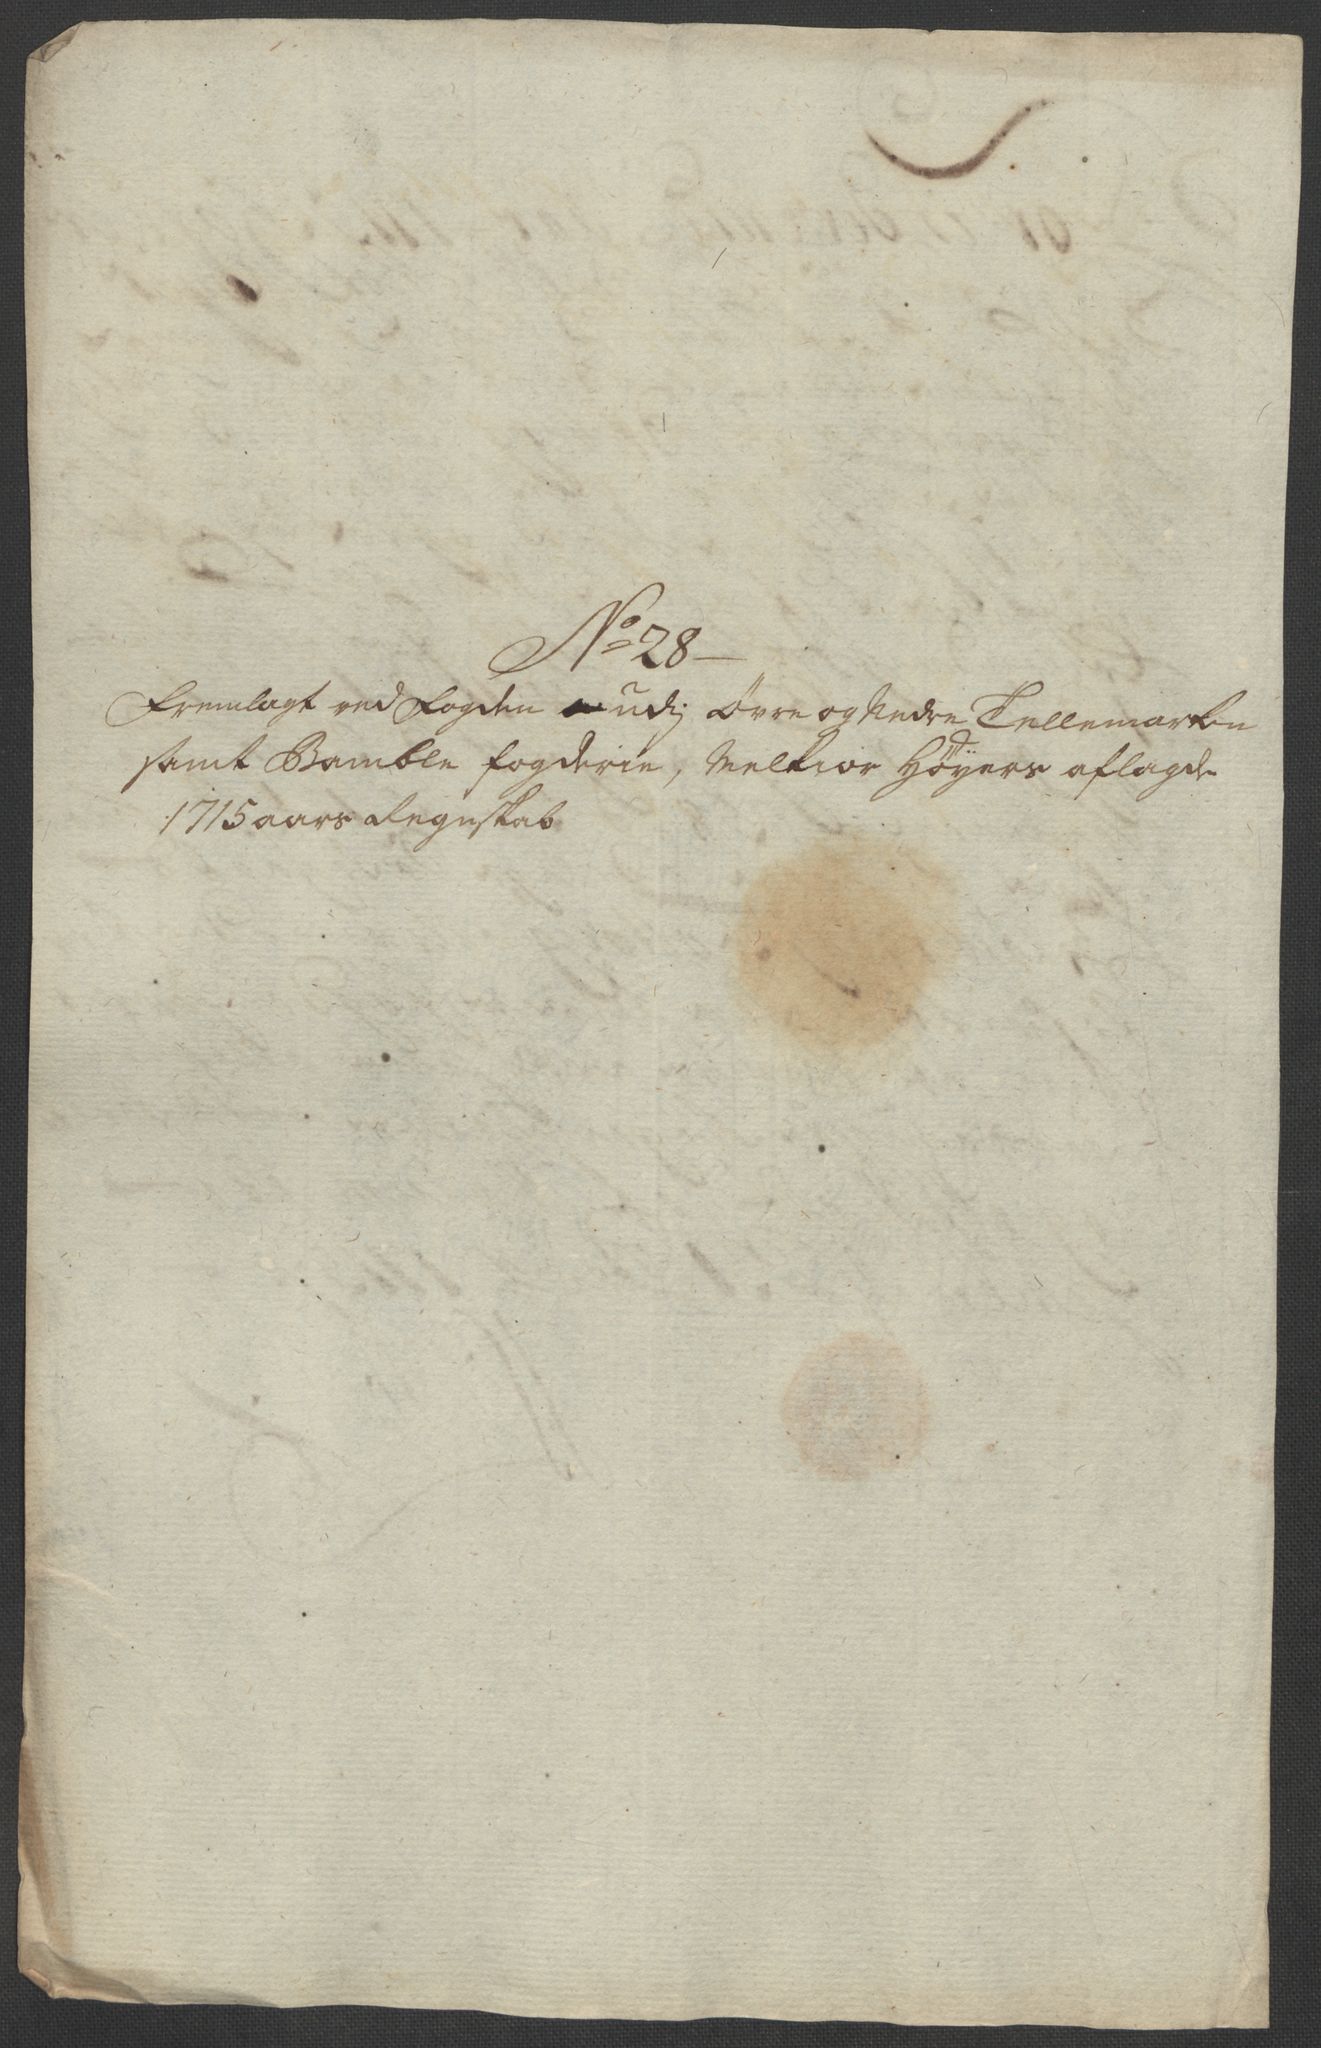 No 28
Fremlagt ved Fogden udj Øvre og Nedre Tellemarken
samt Bamble fogderie, Melkior Høyers aflagde
1715 aars Regnskab